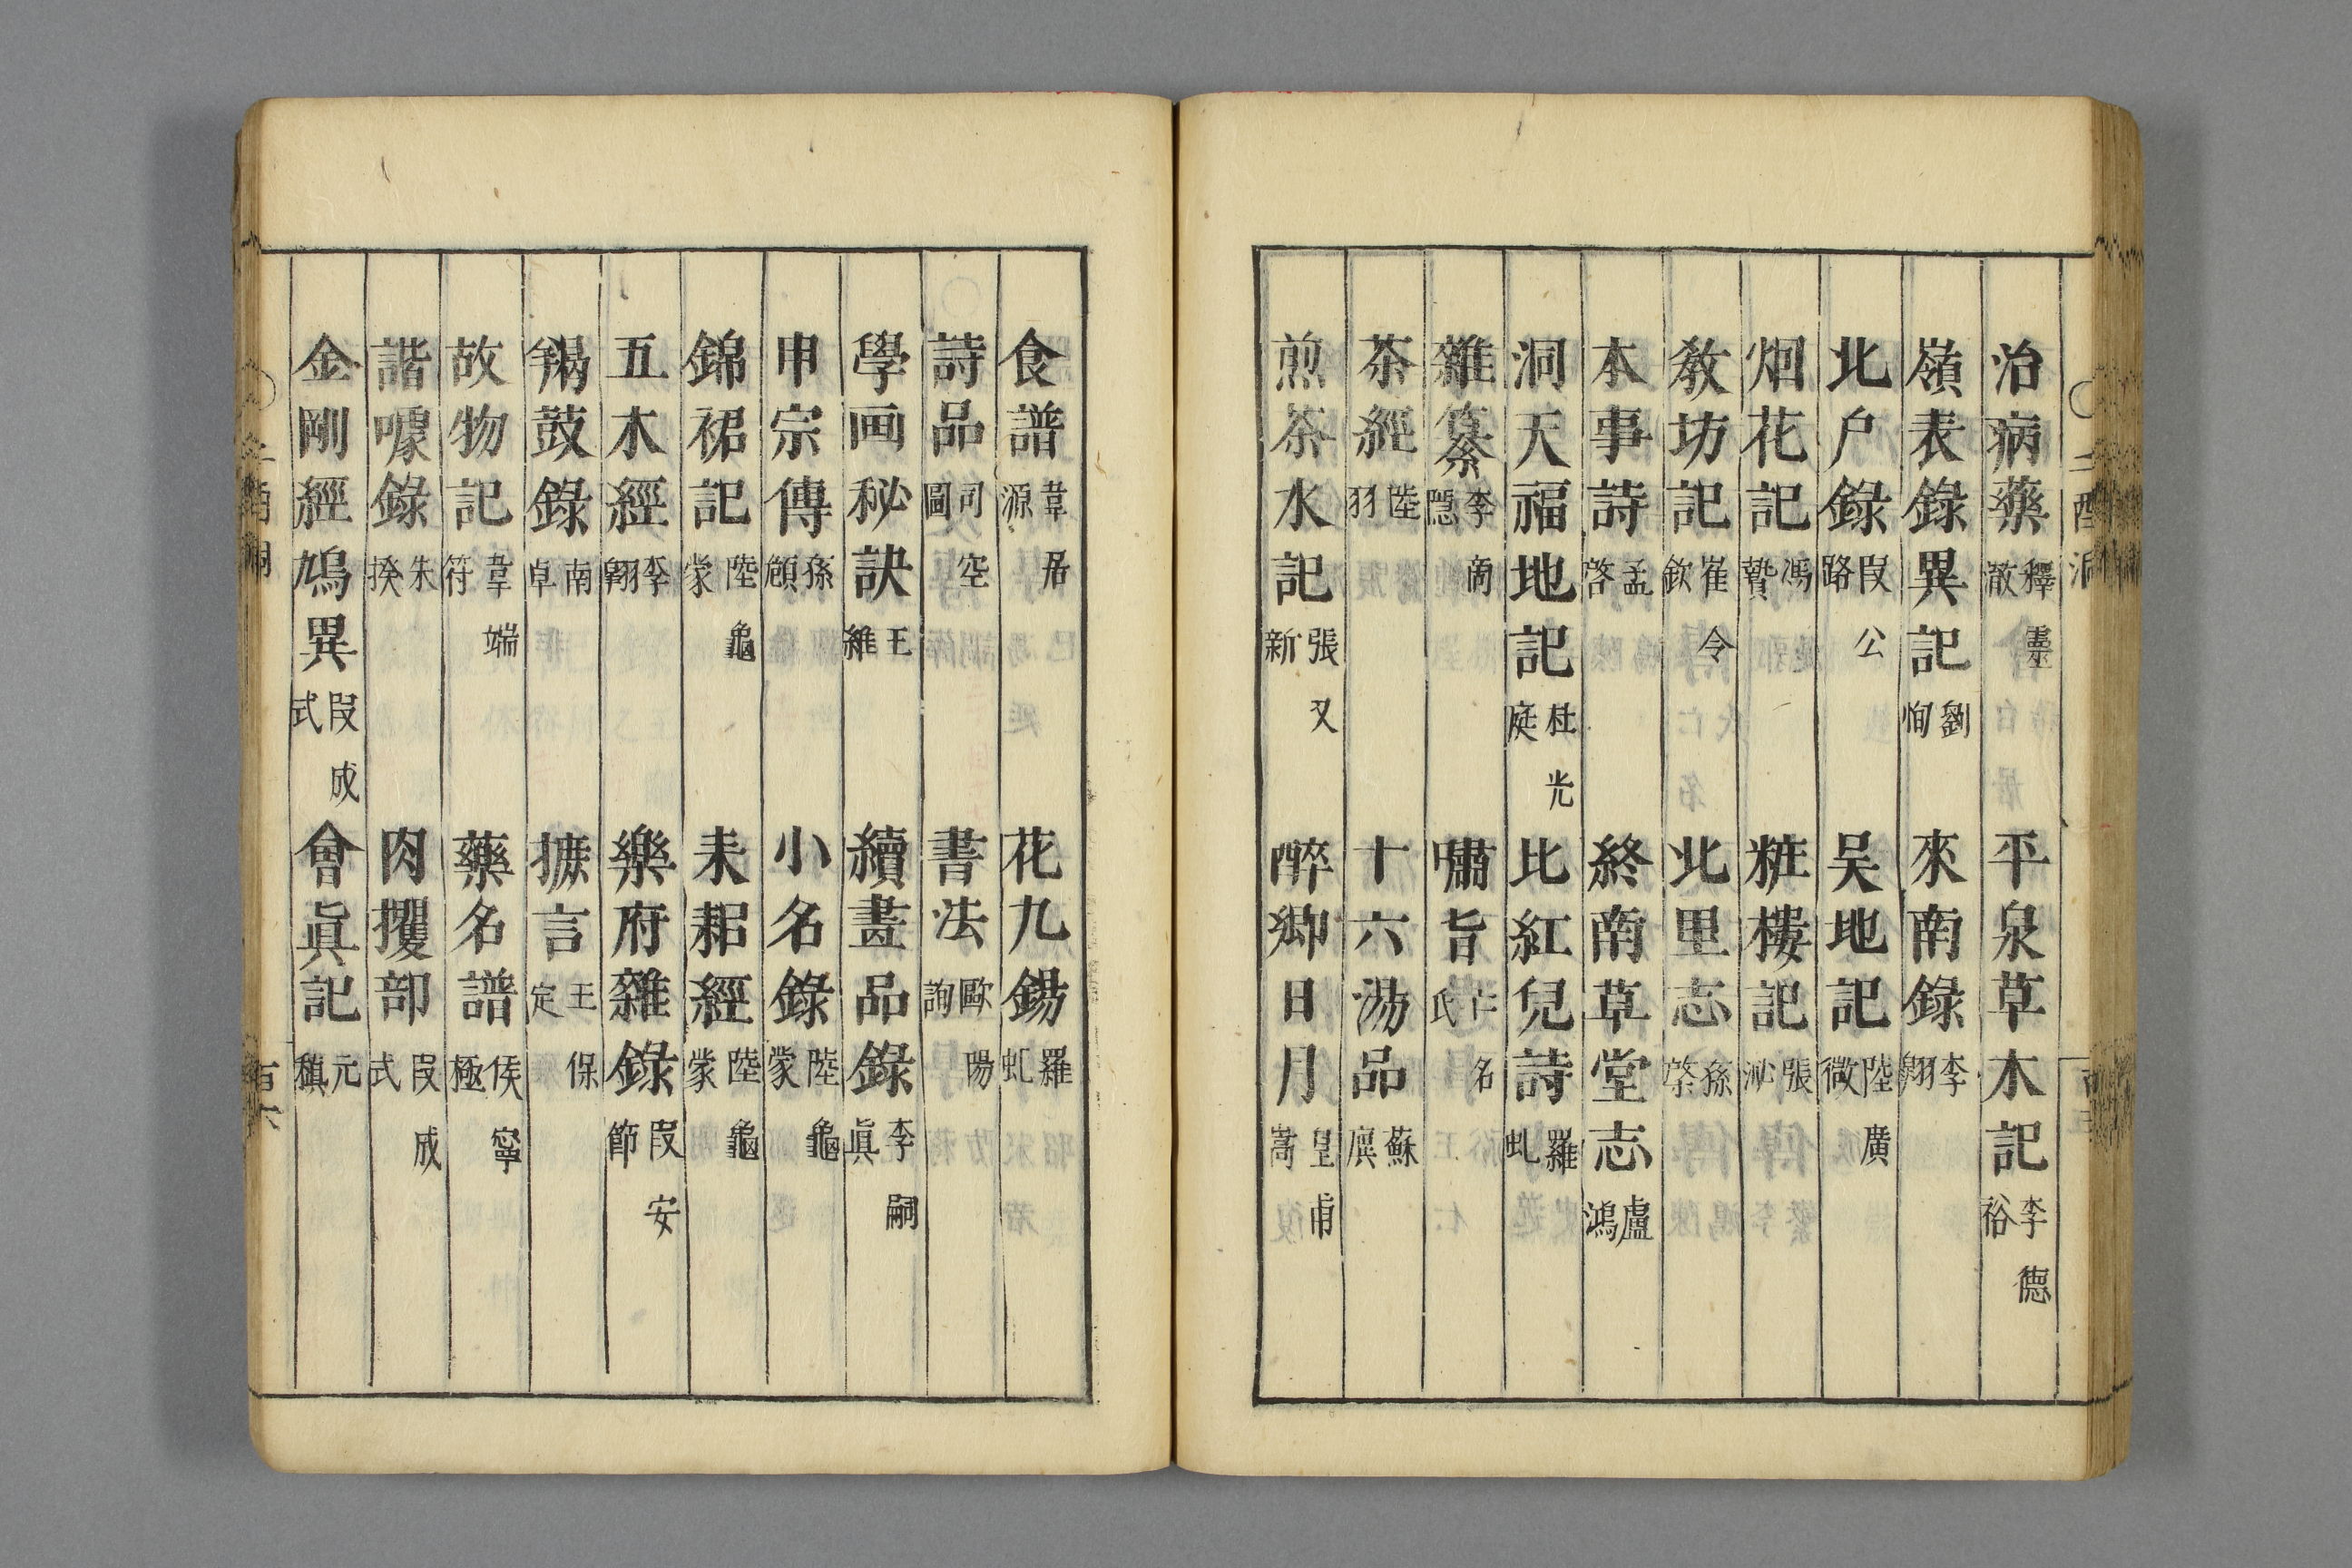 治病藥 釋靈澈 平泉草木記 李德裕
嶺表錄異記 劉恂 來南錄 李翱
北戶錄 段公路 吳地記 陸廣微
烟花記 馮贄 粧樓記 張泌
教坊記 崔令欽 北里志 孫棨
本事詩 孟棨 終南草堂志 盧鴻
洞天福地記 杜光庭 比紅兒詩 羅虬
雜纂 李商隱 嘯旨 亡名氏
茶經 陸羽 十六湯品 蘇廙
煎茶水記 張又新 醉鄉日月 皇甫嵩
食譜 韋居源 花九錫 羅虬
詩品 司空圖 書法 歐陽詢
學画秘訣 王維 續畫品錄 李嗣眞
申宗傳 孫頠 小名錄 陸龜蒙
錦裙記 陸龜蒙 耒耜經 陸龜蒙
五木經 李翱 樂府雜錄 段安節
羯鼓錄 南卓 摭言 王保定
故物記 韋端符 藥名譜 侯寧極
諧噱錄 朱揆 肉攫部 段成式
金剛經鳩異 段成式 會眞記 元稹
二酉洞
百六